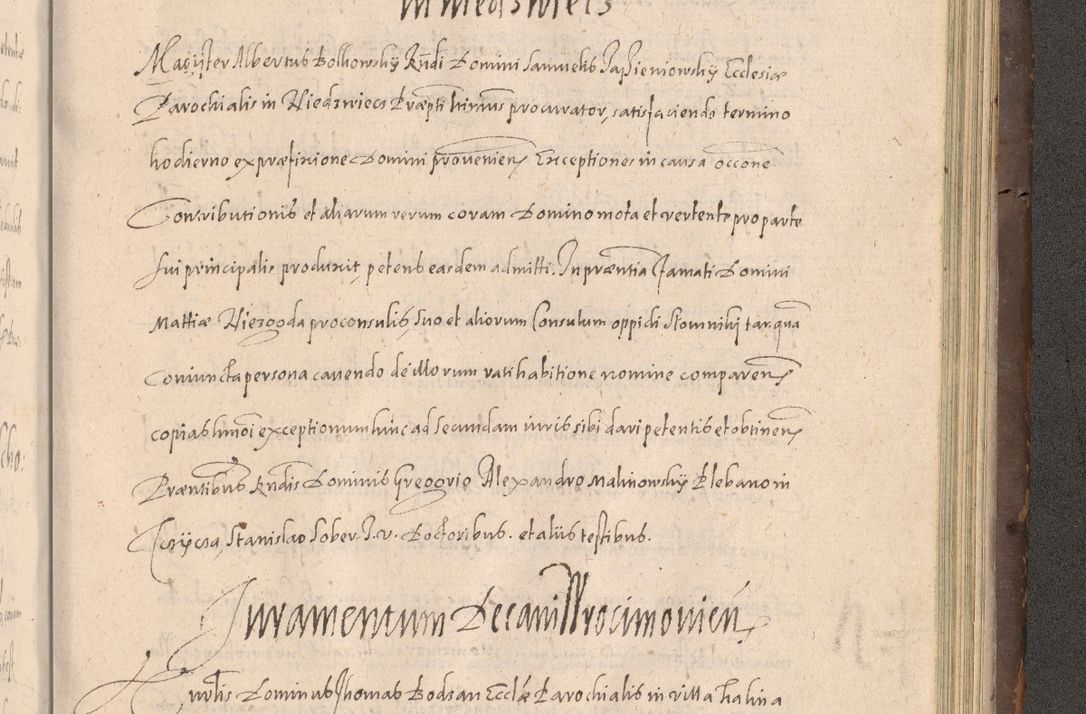 in Niedzwiecz
Magister Albertus Bolkowsky Rndi Domini Samuelis Jasieniowsky Ecclesiæ
Parochialis in Niedzwiecz Præpti ltimus procurator, satisfaciendo termino
hodierno ex præfinione Domini provenien Exceptiones in causa occone
Contributionis et aliarum rerum coram Domino mota et vertente pro parte
sui principalis produxit, petens easdem admitti. In præntia famati Domini
Mattiæ Niezgoda proconsulis, suo et aliorum Consulum oppidi Słomniky tanqua
Coniuncta persona cavendo de illorum ratihabitione nomine comparen
copias hmoi exceptionum hinc ad secundam iuris sibi dari petentis et obtinen
Præntibus Rndis Dominis Gregorio Alexandro Malinowsky Plebano in
Stanislao Sober J. V. Doctoribus. et aliis testibus.
Juramentum Decani Wrocimovien
Dominus Thomas Bodzan Ecclæ Parochialis in villa